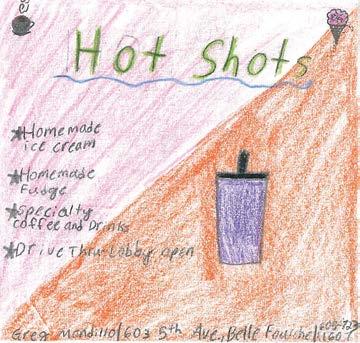 Hot Shots
Homemade
ice cream
Homemade
Fudge
Specialty
coffee and Drinks
Drive Thru-Lobby open
Greg Mandillo/603 5th Ave., Belle Fourche/